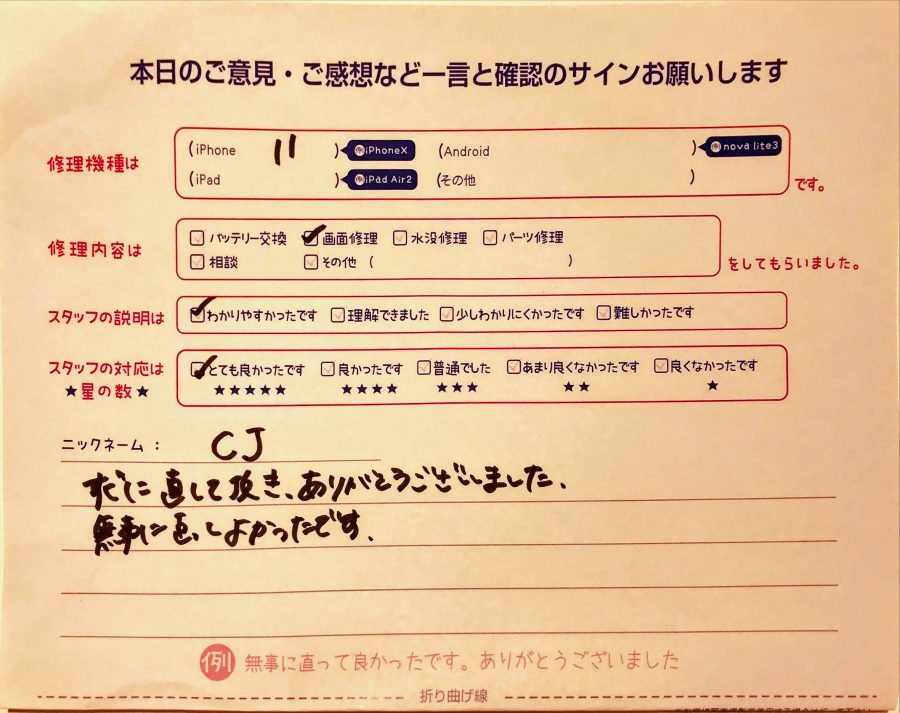 本日のご意見・ご感想など一言と確認のサインお願いします
修理機種は
(iPhone 11 ) 例iPhoneX (Android ) 例nova lite3
(iPad ) 例iPad Air2 (その他 ) です。
修理内容は
バッテリー交換 画面修理 水没修理 パーツ修理
相談 その他 ( ) をしてもらいました。
スタッフの説明は わかりやすかったです 理解できました 少しわかりにくかったです 難しかったです
スタッフの対応は とても良かったです 良かったです 普通でした あまり良くなかったです 良くなかったです
★星の数★ ★★★★★ ★★★★ ★★★ ★★ ★
ニックネーム : CJ
すぐに直して頂き、ありがとうございました。
無事に直しよかったです。
例 無事に直って良かったです。ありがとうございました
折り曲げ線